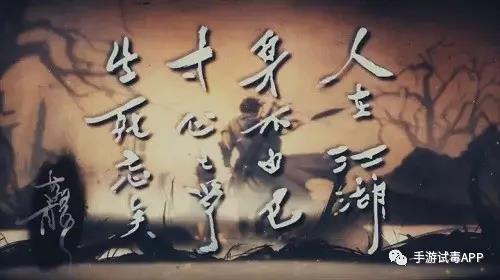 人在江湖
身不由己
寸心
生死忘矣
古龍
手游试毒APP